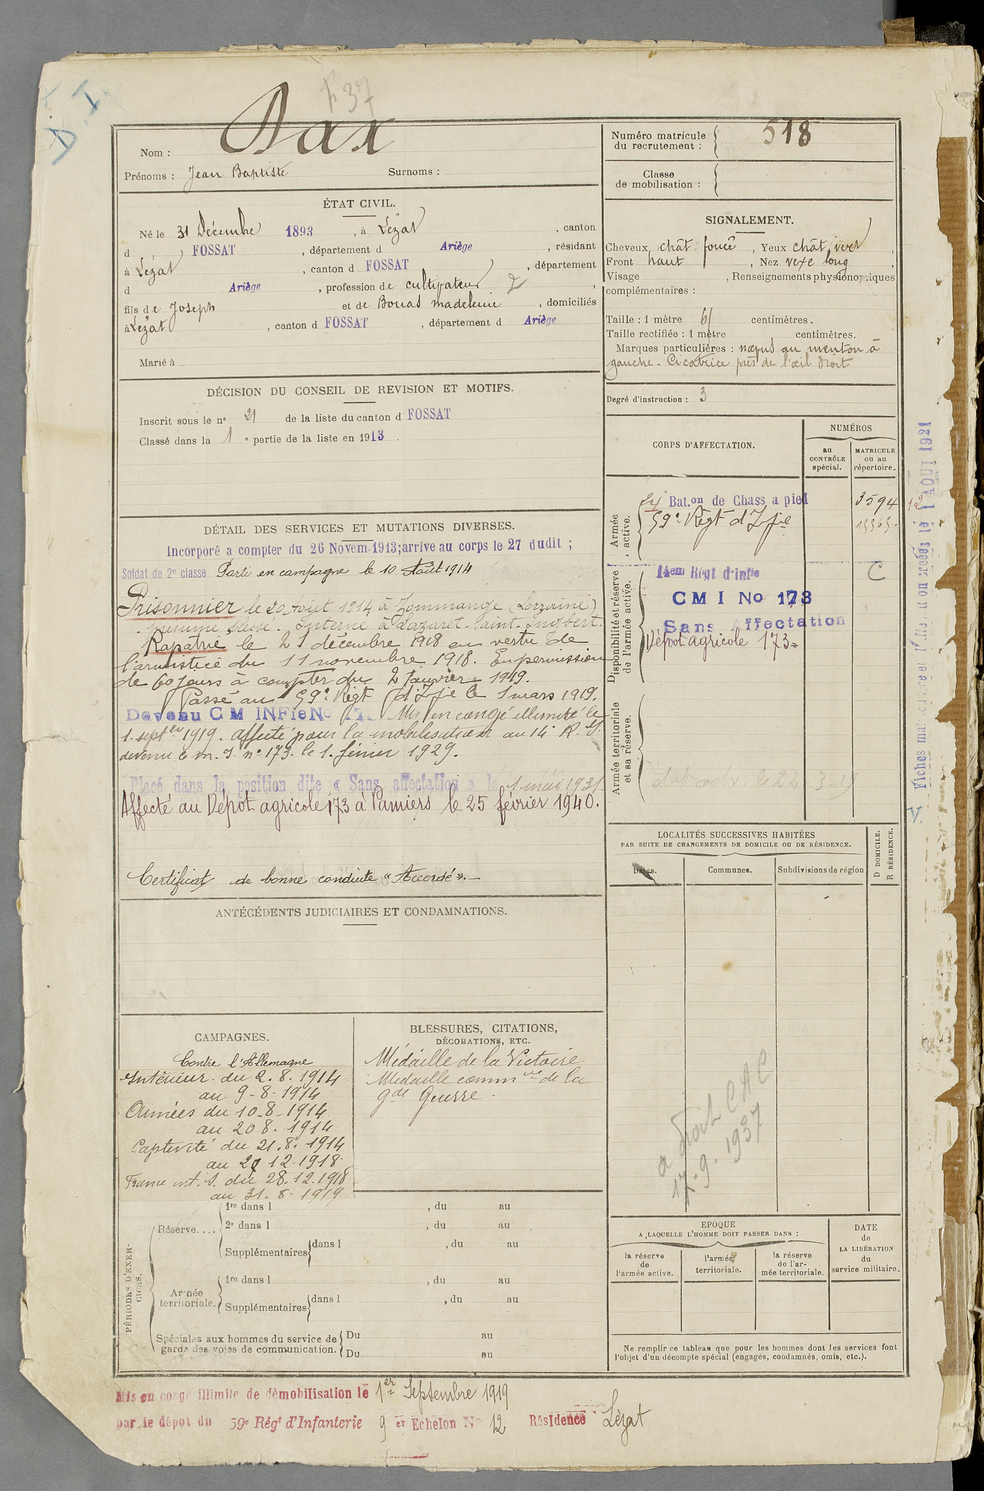 P 37
D. I.
Nom : Dax
Prénoms : Jean Baptiste Surnoms :
Numéro matricule du recrutement : 518
Classe de mobilisation :
ÉTAT CIVIL.
Né le 31 Décembre 1893, à Lézat, canton
d FOSSAT, département d Ariège, résidant
à Lézat, canton d FOSSAT, département
d Ariège, profession de cultivateur
fils de Joseph et de Bouas madeleine, domiciliés
à Lézat, canton d FOSSAT, département d Ariège
Marié à
SIGNALEMENT.
Cheveux, chât foncé, Yeux chât vert
Front haut, Nez vexe long,
Visage , Renseignements physionomiques
complémentaires :
Taille : 1 mètre 61 centimètres.
Taille rectifiée : 1 mètre centimètres.
Marques particulières : nœvus au menton à
gauche - Cicatrice près de l'œil droit
Degré d'instruction : 3
DÉCISION DU CONSEIL DE REVISION ET MOTIFS.
Inscrit sous le nº 21 de la liste du canton d FOSSAT
Classé dans la 1 e partie de la liste en 1913
DÉTAIL DES SERVICES ET MUTATIONS DIVERSES.
Incorporé a compter du 26 Novem. 1913; arrive au corps le 27 dudit ;
Soldat de 2e classe Parti en campagne le 10 Août 1914
Prisonnier le 20 Août 1914 à Zommange (Lorraine)
Interné à Lazaret Saint-Ingbert.
Rapatrié le 21 décembre 1918 en vertu de
l'armistice du 11 novembre 1918. En permission
de 60 jours à compter du 2 Janvier 1919.
Passé au 59e Régt d'Ifie le 1 mars 1919.
Devenu C M INFie No Mis en congé illimité le
1. septbre 1919. affecté pour la mobilisation au 14e R. I.
devenu C. m. I. nº 173. le 1. février 1929.
Placé dans la position dite « Sans affectation » le 1 mai 1931
Affecté au Dépôt agricole 173 à Pamiers le 25 février 1940.
Certificat de bonne conduite « Accordé ».
CORPS D'AFFECTATION.
NUMÉROS
au CONTRÔLE spécial.
MATRICULE ou au répertoire.
Armée active.
Bat.on de Chass a pied 3594
59e Régt d'Ifie
Disponibilité et réserve de l'armée active.
14em Régt d'Infie C
C M I No 173
Sans Affectation
Dépôt agricole 173
Armée territoriale et sa réserve.
LOCALITÉS SUCCESSIVES HABITÉES
PAR SUITE DE CHANGEMENTS DE DOMICILE OU DE RÉSIDENCE.
Dates. Communes. Subdivisions de région
D DOMICILE.
R RÉSIDENCE.
ANTÉCÉDENTS JUDICIAIRES ET CONDAMNATIONS.
CAMPAGNES.
Contre l'Allemagne
Intérieur. du 2.8.1914
au 9-8-1914
Armées du 10-8-1914
au 20 8. 1914
Captivité du 21.8.1914
au 27 12-1918
France int. S. du 28.12.1918
au 31. 8. 1919
BLESSURES, CITATIONS,
DÉCORATIONS, ETC.
Médaille de la Victoire
Médaille commve de la
gde Guerre.
a droit CAC
17.9.1937
PÉRIODES D'EXERCICES.
Réserve.... 1re dans l , du au
2e dans l , du au
Supplémentaires dans l , du au
Armée territoriale. 1re dans l , du au
Supplémentaires dans l , du au
Spéciales aux hommes du service de Du au
garde des voies de communication. Du au
EPOQUE
A LAQUELLE L'HOMME DOIT PASSER DANS :
la réserve de l'armée active.
l'armée territoriale.
la réserve de l'armée territoriale.
DATE de LA LIBÉRATION du service militaire.
Ne remplir ce tableau que pour les hommes dont les services font
l'objet d'un décompte spécial (engagés, condamnés, omis, etc.).
Mis en congé illimité de démobilisation le 1er Septembre 1919
par le dépôt du 59e Régt d'Infanterie 9 er Echelon No 12 Résidence Lézat